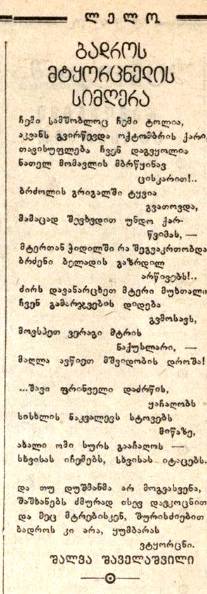 ლელო
ბადროს
მტყორცნელის
სიმღერა
ჩემი სამშობლოც ჩემი ტოლია,
აკვანს გვირწევდა ოქტომბრის ქარი,
თავისუფლება ჩვენ დაგვყოლია
ნათელ მომავლის მბრწყინავ
ცისკარით!..
ბრძოლის გრიგალში ტყვია
გვათოვდა,
მამაცად შევხვდით უნდო ქარ-
წვიმას, —
მტერთან ჭიდილში რა შეგვაკრთობდა
ბრძენი ბელადის გაზრდილ
არწივებს!..
ძირს დავანარცხეთ მტერი მუხთალი
ჩვენ გამარჯვების დიდება
გვმოსავს,
მოვსპეთ ვერაგი მტრის
ნაქუსლარი, —
მაღლა ავწიეთ მშვიდობის დროშა!
...შავი ფრინველი დაძრწის,
ყაჩაღობს
სისხლის ნაკვალევს სტოვებს
მიწაზე,
ახალი ომი სურს გააჩაღოს —
სხვისას იჩემებს, სხვისას იტაცებს.
და თუ დუშმანმა არ მოგვასვენა,
შაშხანებს ძმურად ისევ დავკოცნით
და მეც მტრებისკენ, შურისძიებით
ბადროს კი არა, ყუმბარას
ვტყორცნი.
შალვა შაველაშვილი